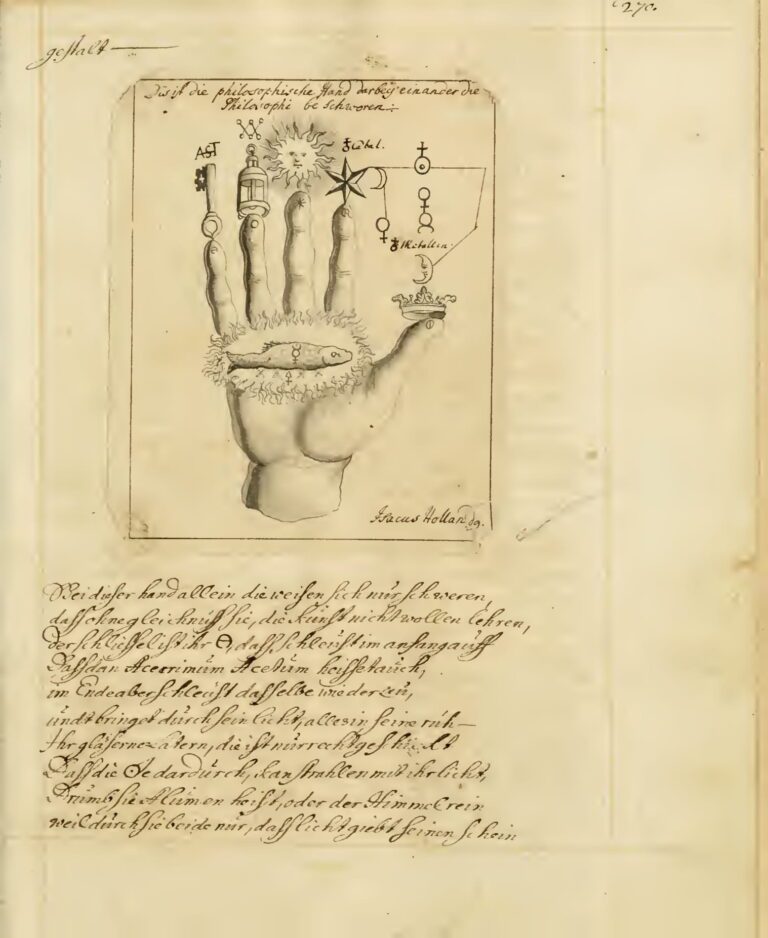 270.
gestalt
Dis ist die philosophische Hand darbeÿ einander die
Philosophi be schworen :
AST
☿ Cùbel.
☿ Metallen.
Isacus Holland
Bei dieser hand allein die weisen sich nùr schweren,
dass ohne gleichnùss sie, die kùnst nicht wollen lehren,
der schlissel ist ihr dass schleùst im anfang aùff
Dass dan Acerrimùm Acetùm heisset aùch,
im Ende aber schleùst dasselbe wieder zù,
ùndt bringet dùrch sein licht, alles in seine rùh
Ihr gläserne latern, die ist nùr recht geschickt
Dass die dardùrch, kan strahlen mit ihr licht,
Drùmb sie Alùmen heist, oder der Himmel rein
weil dùrch sie beide nùr, dass licht giebt seinen schein